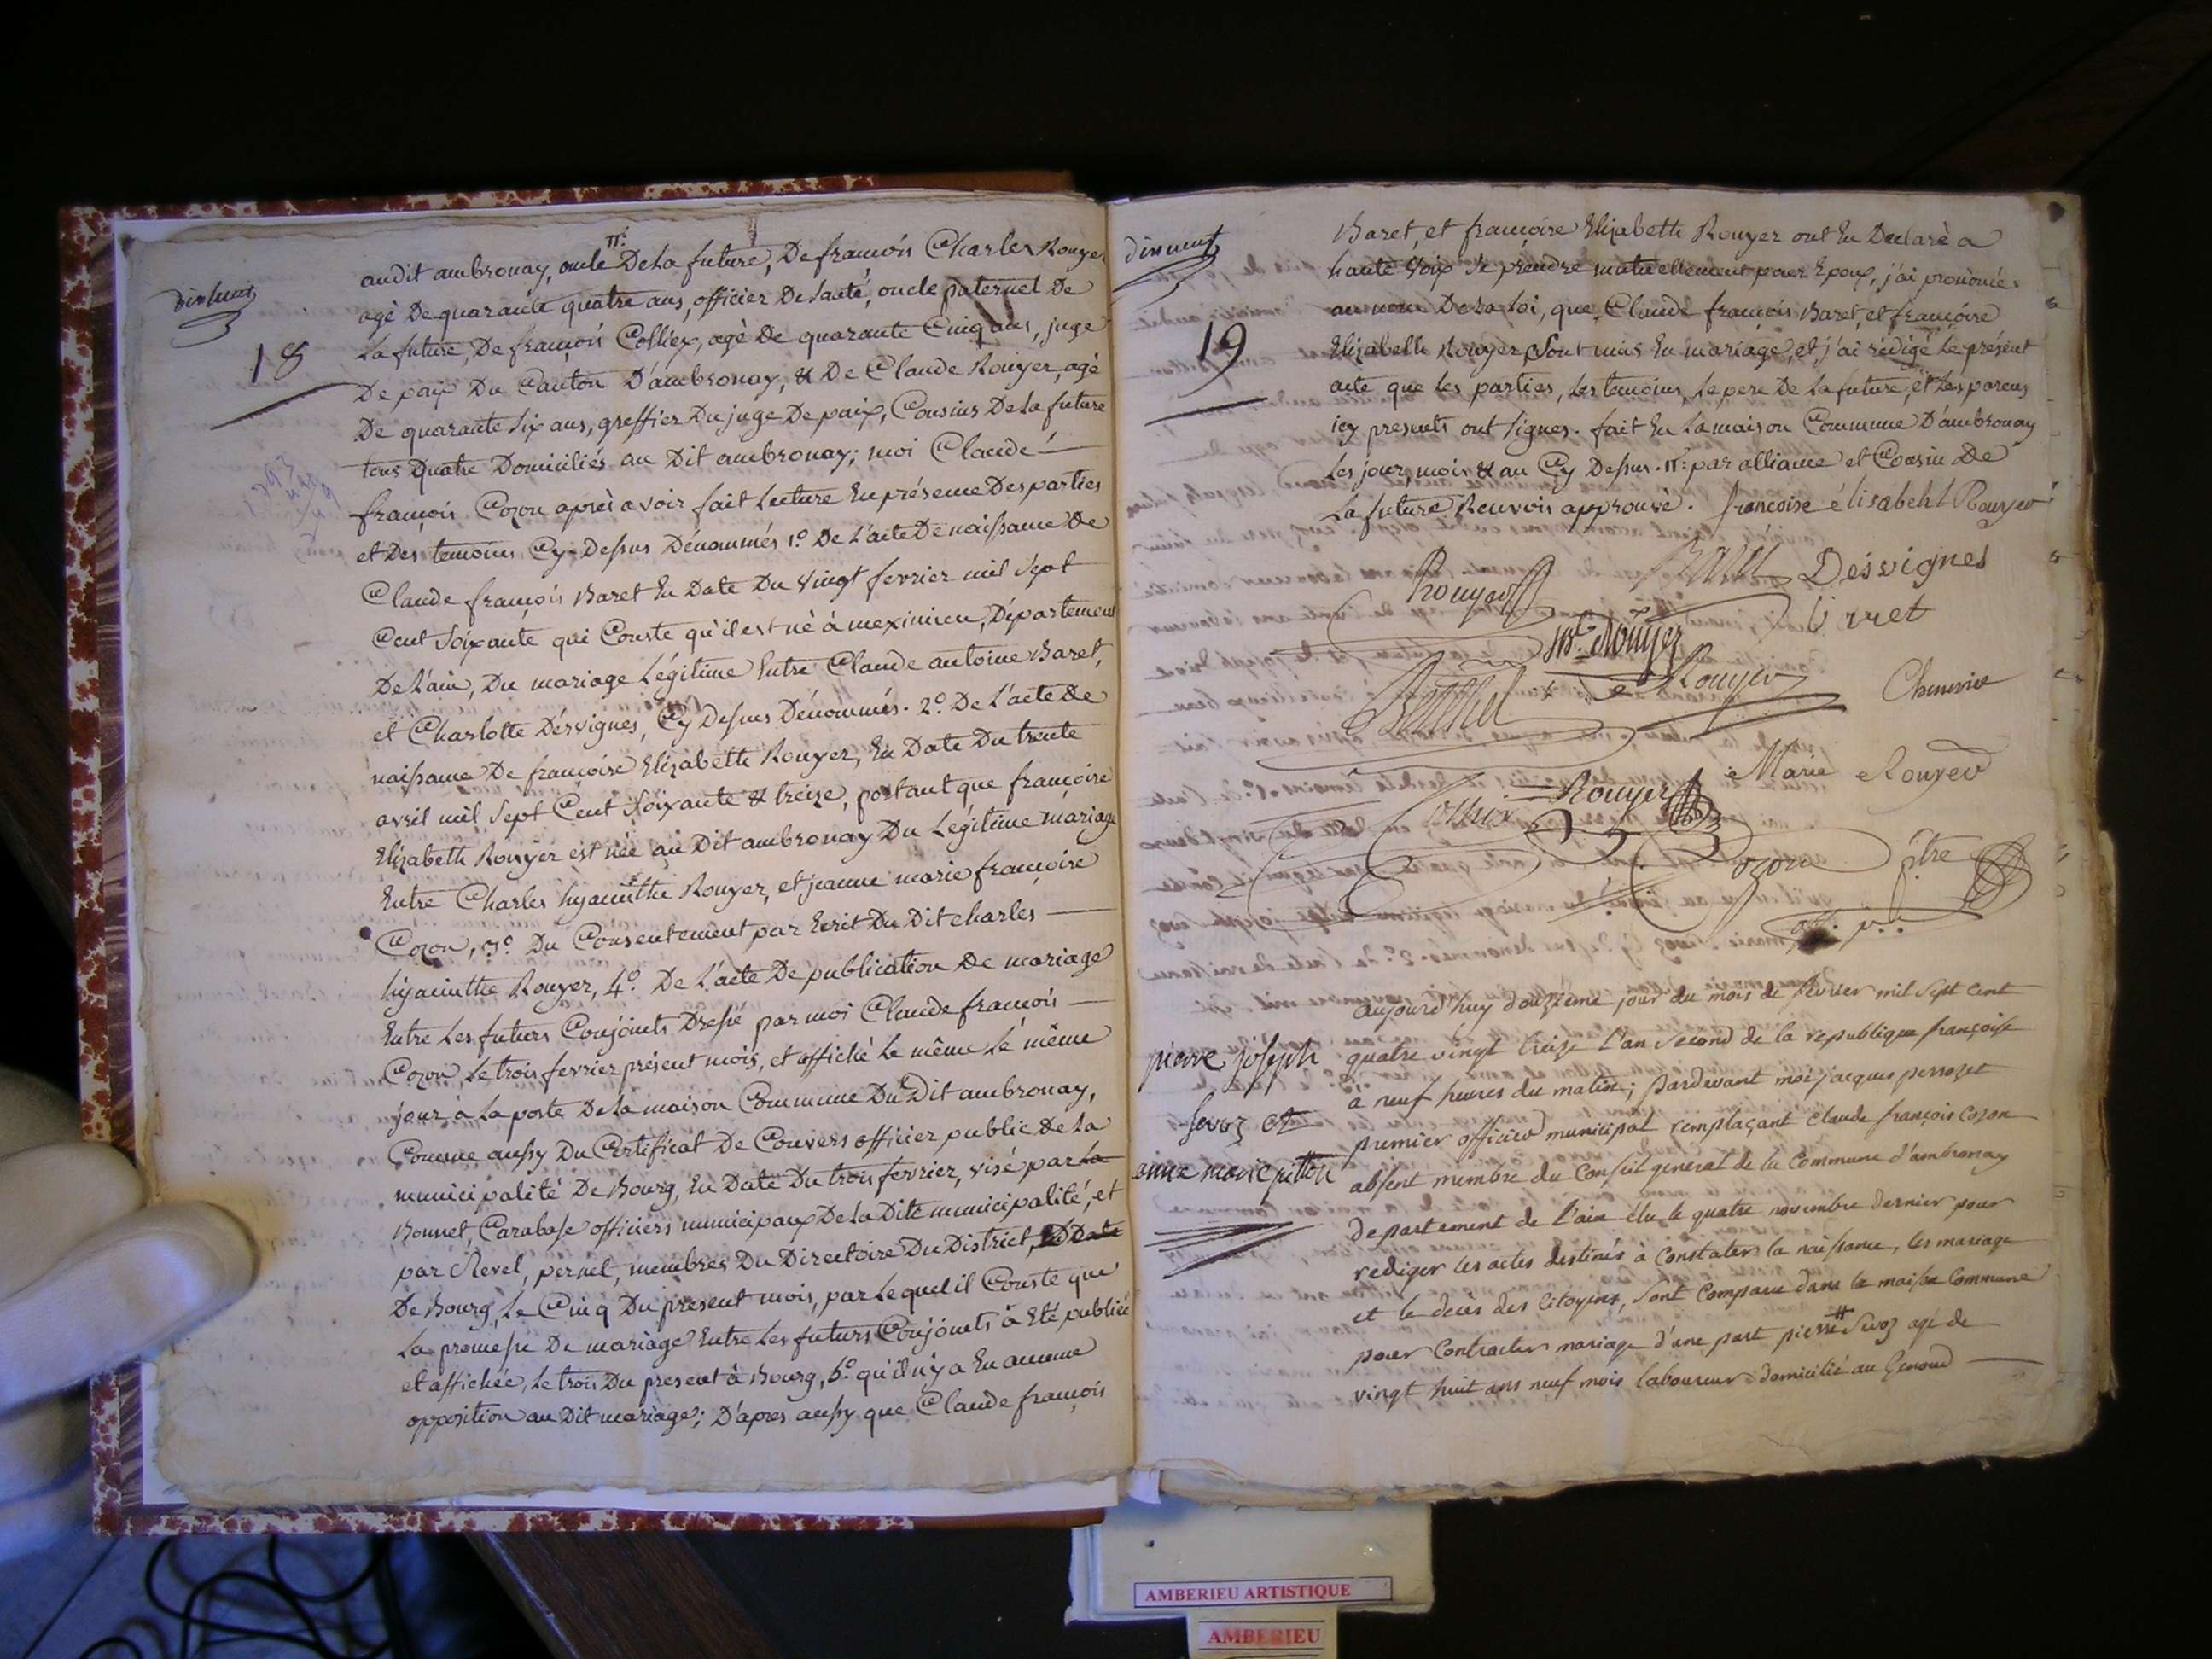 dixhuit
18
π:
audit ambronay, oncle De la future, De françois Charles Rouyer
agé De quarante quatre ans, officier De santé, oncle paternel De
La future, De françois Colliex, agé De quarante Cinq ans, juge
De paix Du Canton D'ambronay, & De Claude Rouyer, agé
De quarante Six ans, greffier Du juge De paix, Cousins De La future
tous quatre Domiciliés au Dit ambronay; moi Claude
françois Cozon après avoir fait Lecture En présence Des parties
et Des temoins Cy-Dessus Dénommés 1.º De L'acte De naissance De
Claude françois Baret En Date Du vingt fevrier mil Sept
Cent Soixante qui Conste qu'il est né à meximieu, Département
De L'ain, Du mariage Légitime Entre Claude antoine Baret,
et Charlotte Désvignes, Cy Dessus Dénommés. 2.º De L'acte De
naissance De françoise Elizabeth Rouyer, En Date Du trente
avril mil Sept Cent Soixante & treize, portant que françoise
Elizabeth Rouyer est née au Dit ambronay Du Légitime mariage
Entre Charles hyacinthe Rouyer, et jeanne marie françoise
Cozon, 3.º Du Consentement par Ecrit Du Dit charles
hyacinthe Rouyer, 4.º De L'acte De publication De mariage
Entre Les futurs Conjoints Dressé par moi Claude françois
Cozon Le trois fevrier présent mois, et affiché Le même Le même
jour à La porte De La maison Commune Du Dit ambronay,
Comme aussy Du Certificat De Convers officier public De La
municipalité De Bourg, En Date Du trois fevrier, visé par La
Bonnet, Carabasse officiers municipaux De La Dite municipalité, et
par Revel, pernet, membres Du Directoire Du District,
De Bourg, Le Cinq Du présent mois, par Lequel il Conste que
La promesse De mariage Entre Les futurs Conjoints à Eté publiée
et affichée, Le trois Du present à Bourg, 5.º qu'il n'y a Eu aucune
opposition au Dit mariage; D'apres aussy que Claude françois
dixneuf
19
Baret, et françoise Elizabeth Rouyer ont Eu Declaré a
haute Voix Se prendre mutuellement pour Epoux, j'ai prononcé
au nom De La Loi, que Claude françois Baret, et françoise
Elizabeth Rouyer Sont unis En mariage, et j'ai rédigé Le présent
acte que Les parties, Les temoins, Le pere De La future, et Les parens
icy presents ont Signés. fait En La maison Commune D'ambronay
Les jour, mois & an Cy Dessus. π: par alliance et Cousin De
La future Renvois approuvé. françoise élisabeht Rouyer
Rouyer Baret Désvignes
Rouyer
Rouyer
Marie Rouyer
Rouyer
Cozon ptre
off. p..
pierre joseph
Sevoz et
anne marie pitton
aujourd'huy douzieme jour du mois de fevrier mil Sept Cent
quatre vingt treize L'an Second de la republique françoise
a neuf heures du matin; pardevant moi jacques perrozet
premier officier municipal remplaçant Claude françois Cozon
absent membre du Conseil general de la Commune d'ambronay
departement de l'ain élu le quatre novembre dernier pour
rediger les actes destinés à Constater la naissance, les mariage
et le decès des Citoyens, Sont Comparu dans la maison Commune
pour Contracter mariage d'une part pierre Sevoz agé de
vingt huit ans neuf mois laboureur domicilié au Genoud
AMBERIEU ARTISTIQUE
AMBERIEU